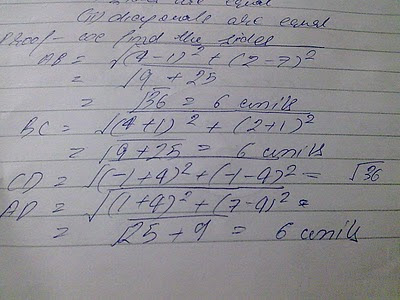 (ii) diagonals are equal
Proof - we find the sides
AB = √(4-1)² + (2-7)²
= √9 + 25
= √36 = 6 units
BC = √(4+1)² + (2+1)²
= √9+25 = 6 units
CD = √(-1+4)² + (-1-4)² = √36
AD = √(1+4)² + (7-4)² =
= √25 + 9 = 6 units